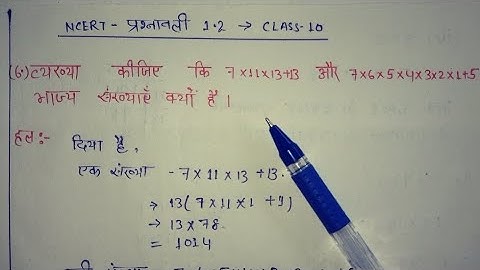 NCERT - प्रश्नावली 1.2 → CLASS-10
(6.) व्याख्या कीजिए कि 7×11×13+13 और 7×6×5×4×3×2×1+5
भाज्य संख्याएँ क्यों है ।
हल:- दिया है,
एक संख्या - 7×11×13+13.
→ 13(7×11×1+1)
→ 13×78
= 1014